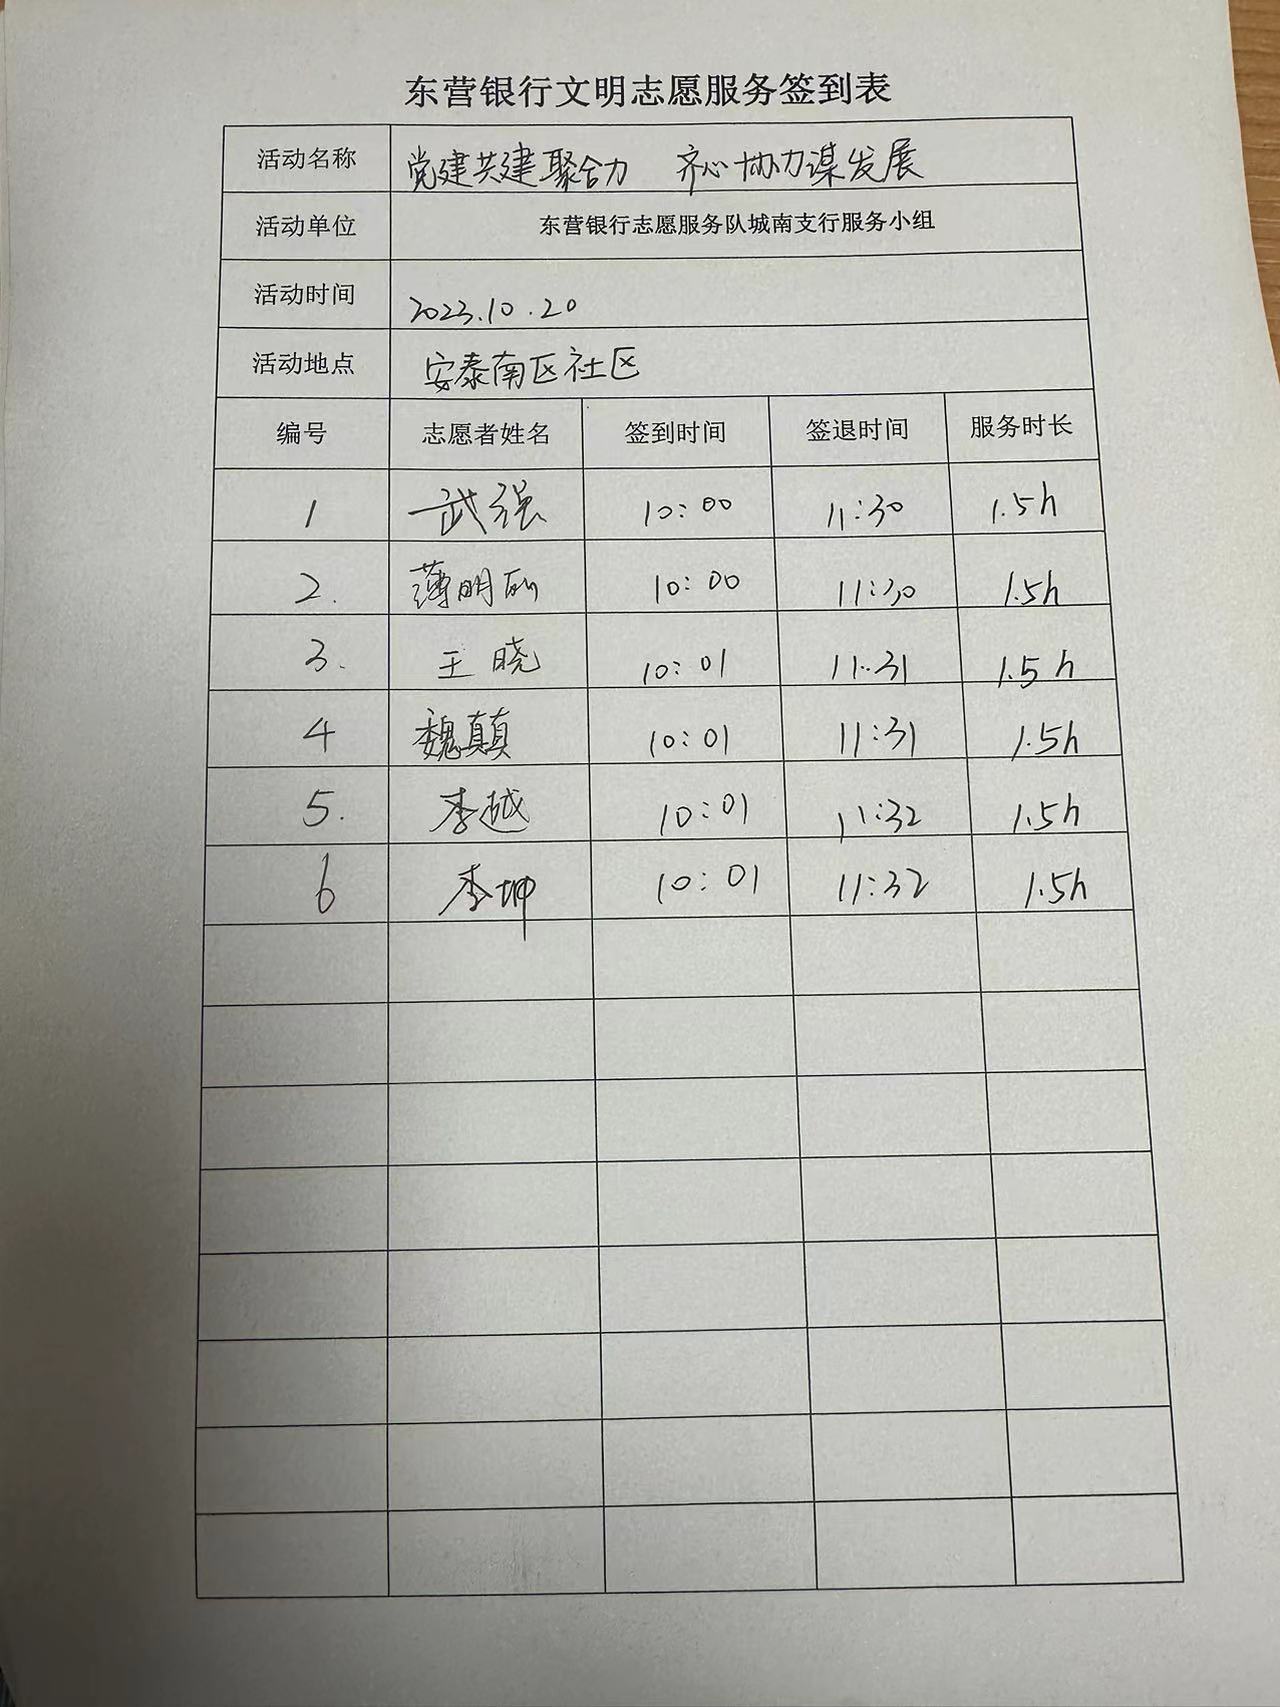 东营银行文明志愿服务签到表
活动名称 党建共建聚合力 齐心协力谋发展
活动单位 东营银行志愿服务队城南支行服务小组
活动时间 2023.10.20
活动地点 安泰南区社区
编号 志愿者姓名 签到时间 签退时间 服务时长
1 武强 10:00 11:30 1.5h
2. 薄明 10:00 11:30 1.5h
3. 王晓 10:01 11:31 1.5h
4 魏颠 10:01 11:31 1.5h
5. 李越 10:01 11:32 1.5h
6 李坤 10:01 11:32 1.5h